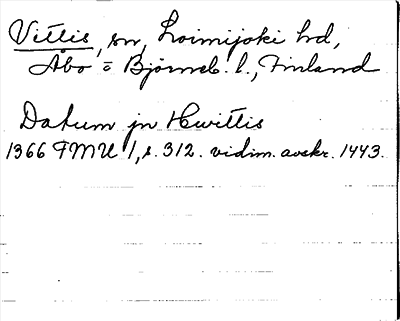 Vittis, sn, Loimijoki hd,
Åbo o Björneb. l., Finland
Datum jn Hwittis
1366 FMU 1, s. 312. vidim. avskr. 1443.